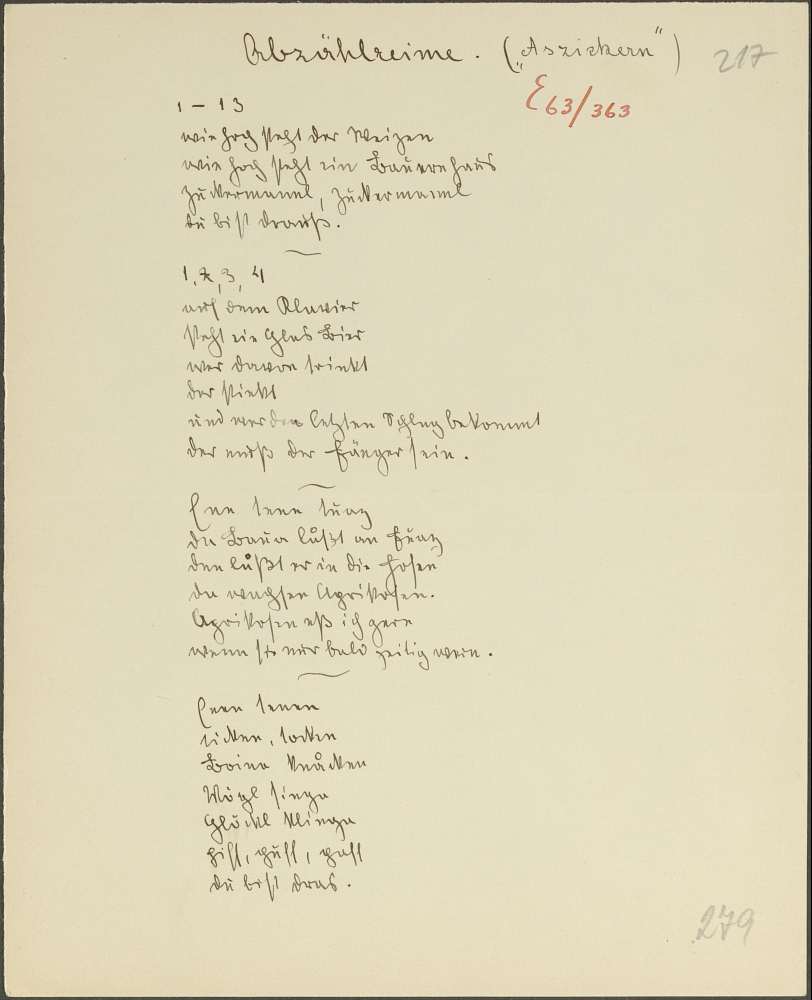 Abzählreime. („Aszickern“) 217
E 63/363
1 – 13
wie hoch steht der Weizen
wie hoch steht ein Bauernhaus
Zuckermannl, Zuckermannl
du bist drauß.
1, 2, 3, 4
auf dem Klavier
steht ein Glas Bier
wer davon trinkt
der stinkt
und wer den letzten Schlug bekommt
der muß der Fänger sein.
Enn tenn tuaz
da Baua låßt an Fuaz
den låßt er in die Hosen
da wachsen Aprikosen.
Aprikosen eß ich gern
wenn sie nur bald zeitig wern.
Enen tenen
ticken, tocken
Boina knåcken
Vögl singa
Glöckl klinga
piff, puff, paff
du bist dras.
279